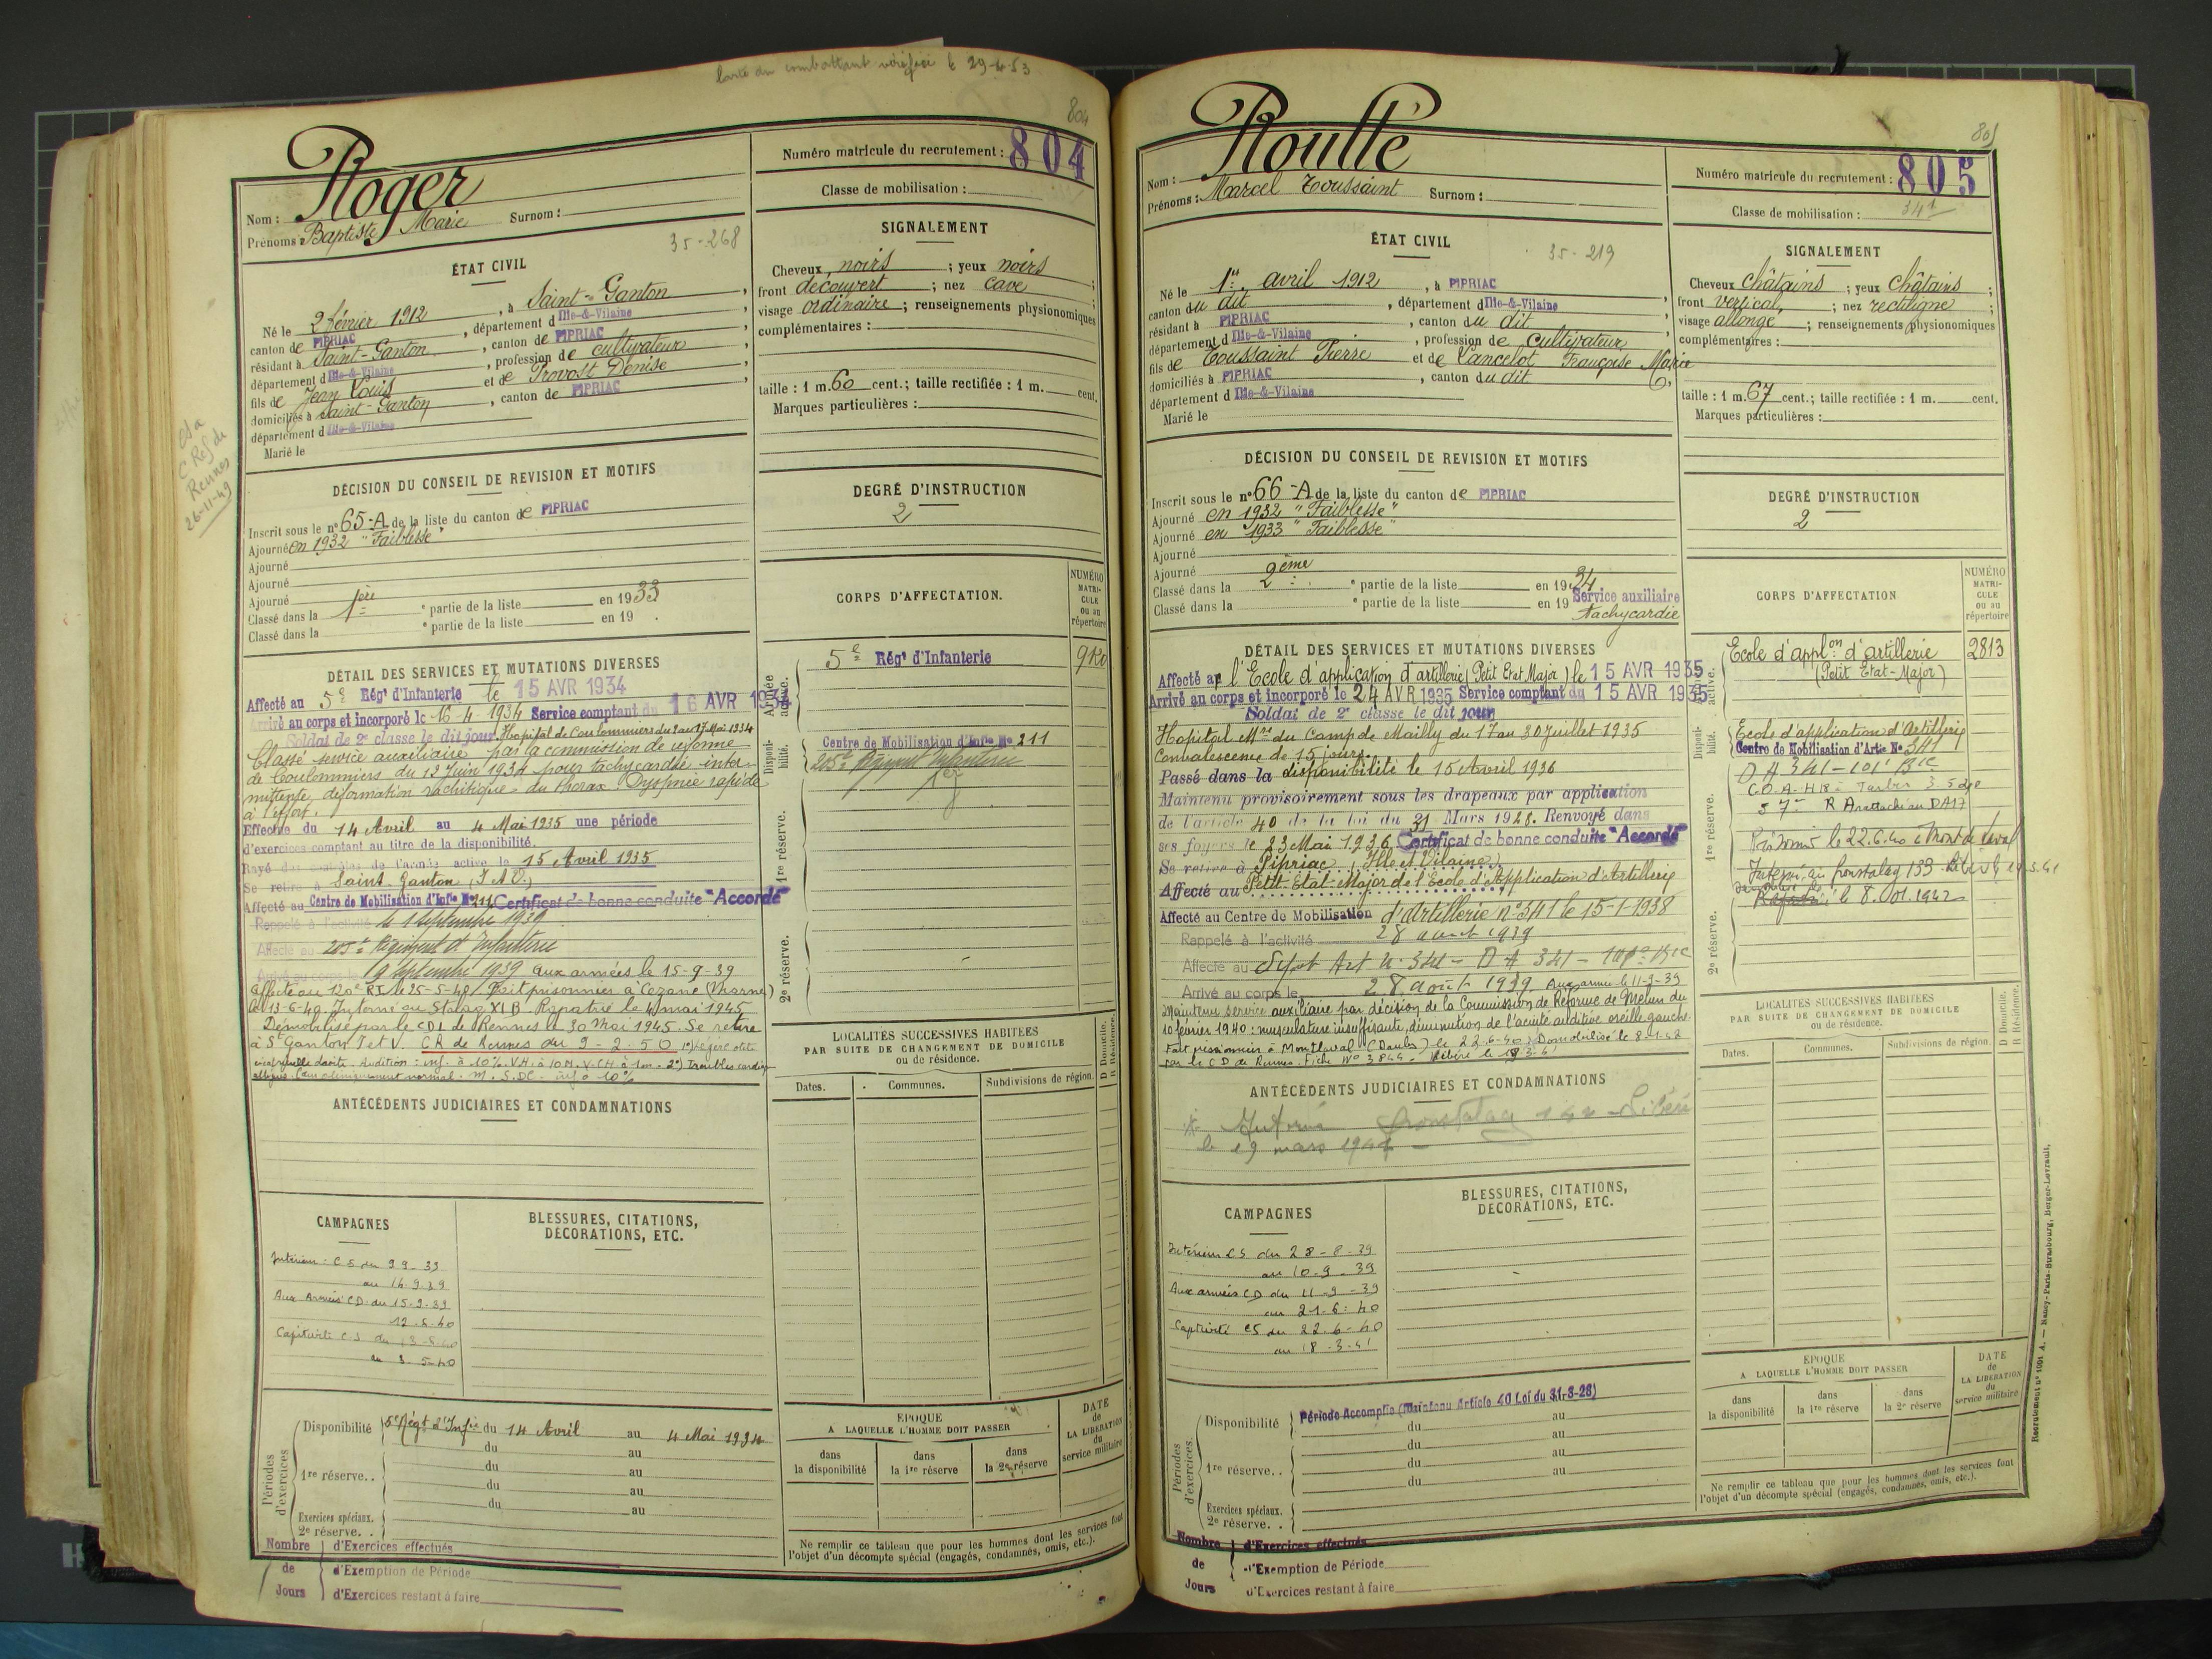 Carte du combattant vérifiée le 29-4-53
804
Roger
Nom :
Prénoms : Baptiste Marie Surnom :
35-268
Numéro matricule du recrutement : 804
Classe de mobilisation :
ÉTAT CIVIL
Né le 2 février 1912, à Saint-Ganton,
canton de PIPRIAC, département d'Ille-&-Vilaine,
résidant à Saint-Ganton, canton de PIPRIAC,
département d'Ille-&-Vilaine, profession de cultivateur
fils de Jean Louis et de Provost Denise
domiciliés à Saint-Ganton, canton de PIPRIAC,
département d'Ille-&-Vilaine
Marié le
SIGNALEMENT
Cheveux noirs ; yeux noirs ;
front découvert ; nez cave ;
visage ordinaire ; renseignements physionomiques
complémentaires :
taille : 1 m. 60 cent.; taille rectifiée : 1 m. cent.
Marques particulières :
C Réf de
Rennes
26-11-49
DÉCISION DU CONSEIL DE REVISION ET MOTIFS
Inscrit sous le n° 65-A de la liste du canton de PIPRIAC
Ajourné en 1932 "Faiblesse"
Ajourné
Ajourné
Ajourné
Classé dans la 1ère e partie de la liste en 1933
Classé dans la e partie de la liste en 19 .
DEGRÉ D'INSTRUCTION
2
CORPS D'AFFECTATION.
NUMÉRO MATRICULE ou au répertoire
Armée active.
5e Régt d'Infanterie
Disponibilité.
Centre de Mobilisation d'Infie No 211
205e Régiment Infanterie
1re réserve.
2e réserve.
DÉTAIL DES SERVICES ET MUTATIONS DIVERSES
Affecté au 5e Régt d'Infanterie le 15 AVR 1934
Arrivé au corps et incorporé le 16-4-1934 Service comptant du 16 AVR 1934
Soldat de 2e classe le dit jour. Hopital de Coulommiers du 9 au 17 Mai 1934
Classé service auxiliaire par la commission de réforme
de Coulommiers du 13 Juin 1934 pour tachycardie inter-
mittente, déformation rachitique du thorax. Dyspnée rapide
à l'effort.
Effectue du 14 Avril au 4 Mai 1935 une période
d'exercices comptant au titre de la disponibilité.
Rayé des contrôles de l'armée active le 15 Avril 1935
Se retire à Saint-Ganton (I et V.)
Affecté au Centre de Mobilisation d'Infie No 211 Certificat de bonne conduite "Accordé"
Rappelé à l'activité le 1 Septembre 1939
Affecté au 205e Régiment d'Infanterie
Arrivé au corps le 9 Septembre 1939 Aux armées le 15-9-39
Affecté au 120e RI le 25-5-40 / Fait prisonnier à Cézane (Marne)
le 13-6-40 Interné au Stalag XI B. Rapatrié le 4 mai 1945
Démobilisé par le CDL de Rennes le 30 Mai 1945. Se retire
à St Ganton I et V. CR de Rennes du 9-2-50 1°) légère otite
cicatricielle droite. Audition : inf. à 10% V.H. à 10 M. V.CH à 1m - 2°) Troubles cardiaques
allégués. Cœur cliniquement normal. M.S.DC - inf à 10%
ANTÉCÉDENTS JUDICIAIRES ET CONDAMNATIONS
LOCALITÉS SUCCESSIVES HABITÉES
PAR SUITE DE CHANGEMENT DE DOMICILE
ou de résidence.
Dates. Communes. Subdivisions de région. D Domicile. R Résidence.
CAMPAGNES
Intérieur : C S du 9 9 - 39
au 14.9.39
Aux Armées CD. du 15.9.39
12.6.40
Captivité C S du 13-6-40
au 3-5-40
BLESSURES, CITATIONS,
DÉCORATIONS, ETC.
Périodes d'exercices
Disponibilité 5e Régt d'Infie du 14 Avril au 4 Mai 1934
du au
1re réserve. . du au
du au
du au
Exercices spéciaux.
2e réserve. .
EPOQUE
A LAQUELLE L'HOMME DOIT PASSER
dans la disponibilité dans la 1re réserve dans la 2e réserve
DATE de LA LIBÉRATION du service militaire
Ne remplir ce tableau que pour les hommes dont les services font
l'objet d'un décompte spécial (engagés, condamnés, omis, etc.).
Nombre de Jours
d'Exercices effectués
d'Exemption de Période
d'Exercices restant à faire
805
Roullé
Nom :
Prénoms : Marcel Toussaint Surnom :
35-219
Numéro matricule du recrutement : 805
Classe de mobilisation : 34 1
ÉTAT CIVIL
Né le 1er avril 1912, à PIPRIAC
canton du dit, département d'Ille-&-Vilaine,
résidant à PIPRIAC, canton du dit,
département d'Ille-&-Vilaine, profession de cultivateur
fils de Toussaint Pierre et de Lancelot Françoise Marie
domiciliés à PIPRIAC, canton du dit,
département d'Ille-&-Vilaine
Marié le
SIGNALEMENT
Cheveux châtains ; yeux châtains ;
front vertical ; nez rectiligne ;
visage allongé ; renseignements physionomiques
complémentaires :
taille : 1 m. 67 cent.; taille rectifiée : 1 m. cent.
Marques particulières :
DÉCISION DU CONSEIL DE REVISION ET MOTIFS
Inscrit sous le n° 66-A de la liste du canton de PIPRIAC
Ajourné en 1932 "Faiblesse"
Ajourné en 1933 "Faiblesse"
Ajourné
Ajourné
Classé dans la 2ème e partie de la liste en 1934
Classé dans la e partie de la liste en 19 Service auxiliaire
tachycardie
DEGRÉ D'INSTRUCTION
2
CORPS D'AFFECTATION
NUMÉRO MATRICULE ou au répertoire
active.
Ecole d'applon d'artillerie 2813
(Petit Etat-Major)
Disponibilité.
Ecole d'application d'Artillerie
Centre de Mobilisation d'Artie No 341
1re réserve.
D A 341 - 101e Bie
2e réserve.
DÉTAIL DES SERVICES ET MUTATIONS DIVERSES
Affecté à l'Ecole d'application d'artillerie (Petit Etat Major) le 15 AVR 1935
Arrivé au corps et incorporé le 24 AVR 1935 Service comptant du 15 AVR 1935
Soldat de 2e classe le dit jour
Hopital Mre du Camp de Mailly du 17 au 30 Juillet 1935
Convalescence de 15 jours.
Passé dans la disponibilité le 15 Avril 1936
Maintenu provisoirement sous les drapeaux par application
de l'article 40 de la loi du 31 Mars 1928. Renvoyé dans
ses foyers le 23 Mai 1936 Certificat de bonne conduite "Accordé"
Se retire à Pipriac (Ille et Vilaine)
Affecté au Petit-Etat-Major de l'Ecole d'Application d'Artillerie
Affecté au Centre de Mobilisation d'Artillerie n° 341 le 15-1-1938
Rappelé à l'activité 28 août 1939
Affecté au Dépôt Art n° 341 - D A 341 - 101e Bie
Arrivé au corps le 28 août 1939. Aux armées le 11-9-39
Maintenu service auxiliaire par décision de la Commission de Réforme de Melun du
10 février 1940 : musculature insuffisante, diminution de l'acuité auditive oreille gauche.
Fait prisonnier à Montlaval (Doubs) le 22-6-40. Démobilisé le 8-1-42
par le C D de Rennes. Fiche No 3844 - Libéré le 19-3-41
ANTÉCÉDENTS JUDICIAIRES ET CONDAMNATIONS
Interné Fronstalag 142 - Libéré
le 19 mars 1941 -
LOCALITÉS SUCCESSIVES HABITÉES
PAR SUITE DE CHANGEMENT DE DOMICILE
ou de résidence.
Dates. Communes. Subdivisions de région. D Domicile. R Résidence.
CAMPAGNES
Intérieur CS du 28-8-39
au 10.9.39
Aux armées CD du 11-9-39
au 21-6-40
Captivité CS du 22-6-40
au 18-3-41
BLESSURES, CITATIONS,
DÉCORATIONS, ETC.
Périodes d'exercices.
Disponibilité Période Accomplie (Maintenu Article 40 Loi du 31-3-28)
du au
du au
1re réserve. . du au
du au
Exercices spéciaux.
2e réserve. .
EPOQUE
A LAQUELLE L'HOMME DOIT PASSER
dans la disponibilité dans la 1re réserve dans la 2e réserve
DATE de LA LIBÉRATION du service militaire
Ne remplir ce tableau que pour les hommes dont les services font
l'objet d'un décompte spécial (engagés, condamnés, omis, etc.).
Nombre de Jours
d'Exercices effectués
d'Exemption de Période
d'Exercices restant à faire
Recrutement n° 1001 A. — Nancy-Paris-Strasbourg, Berger-Levrault.